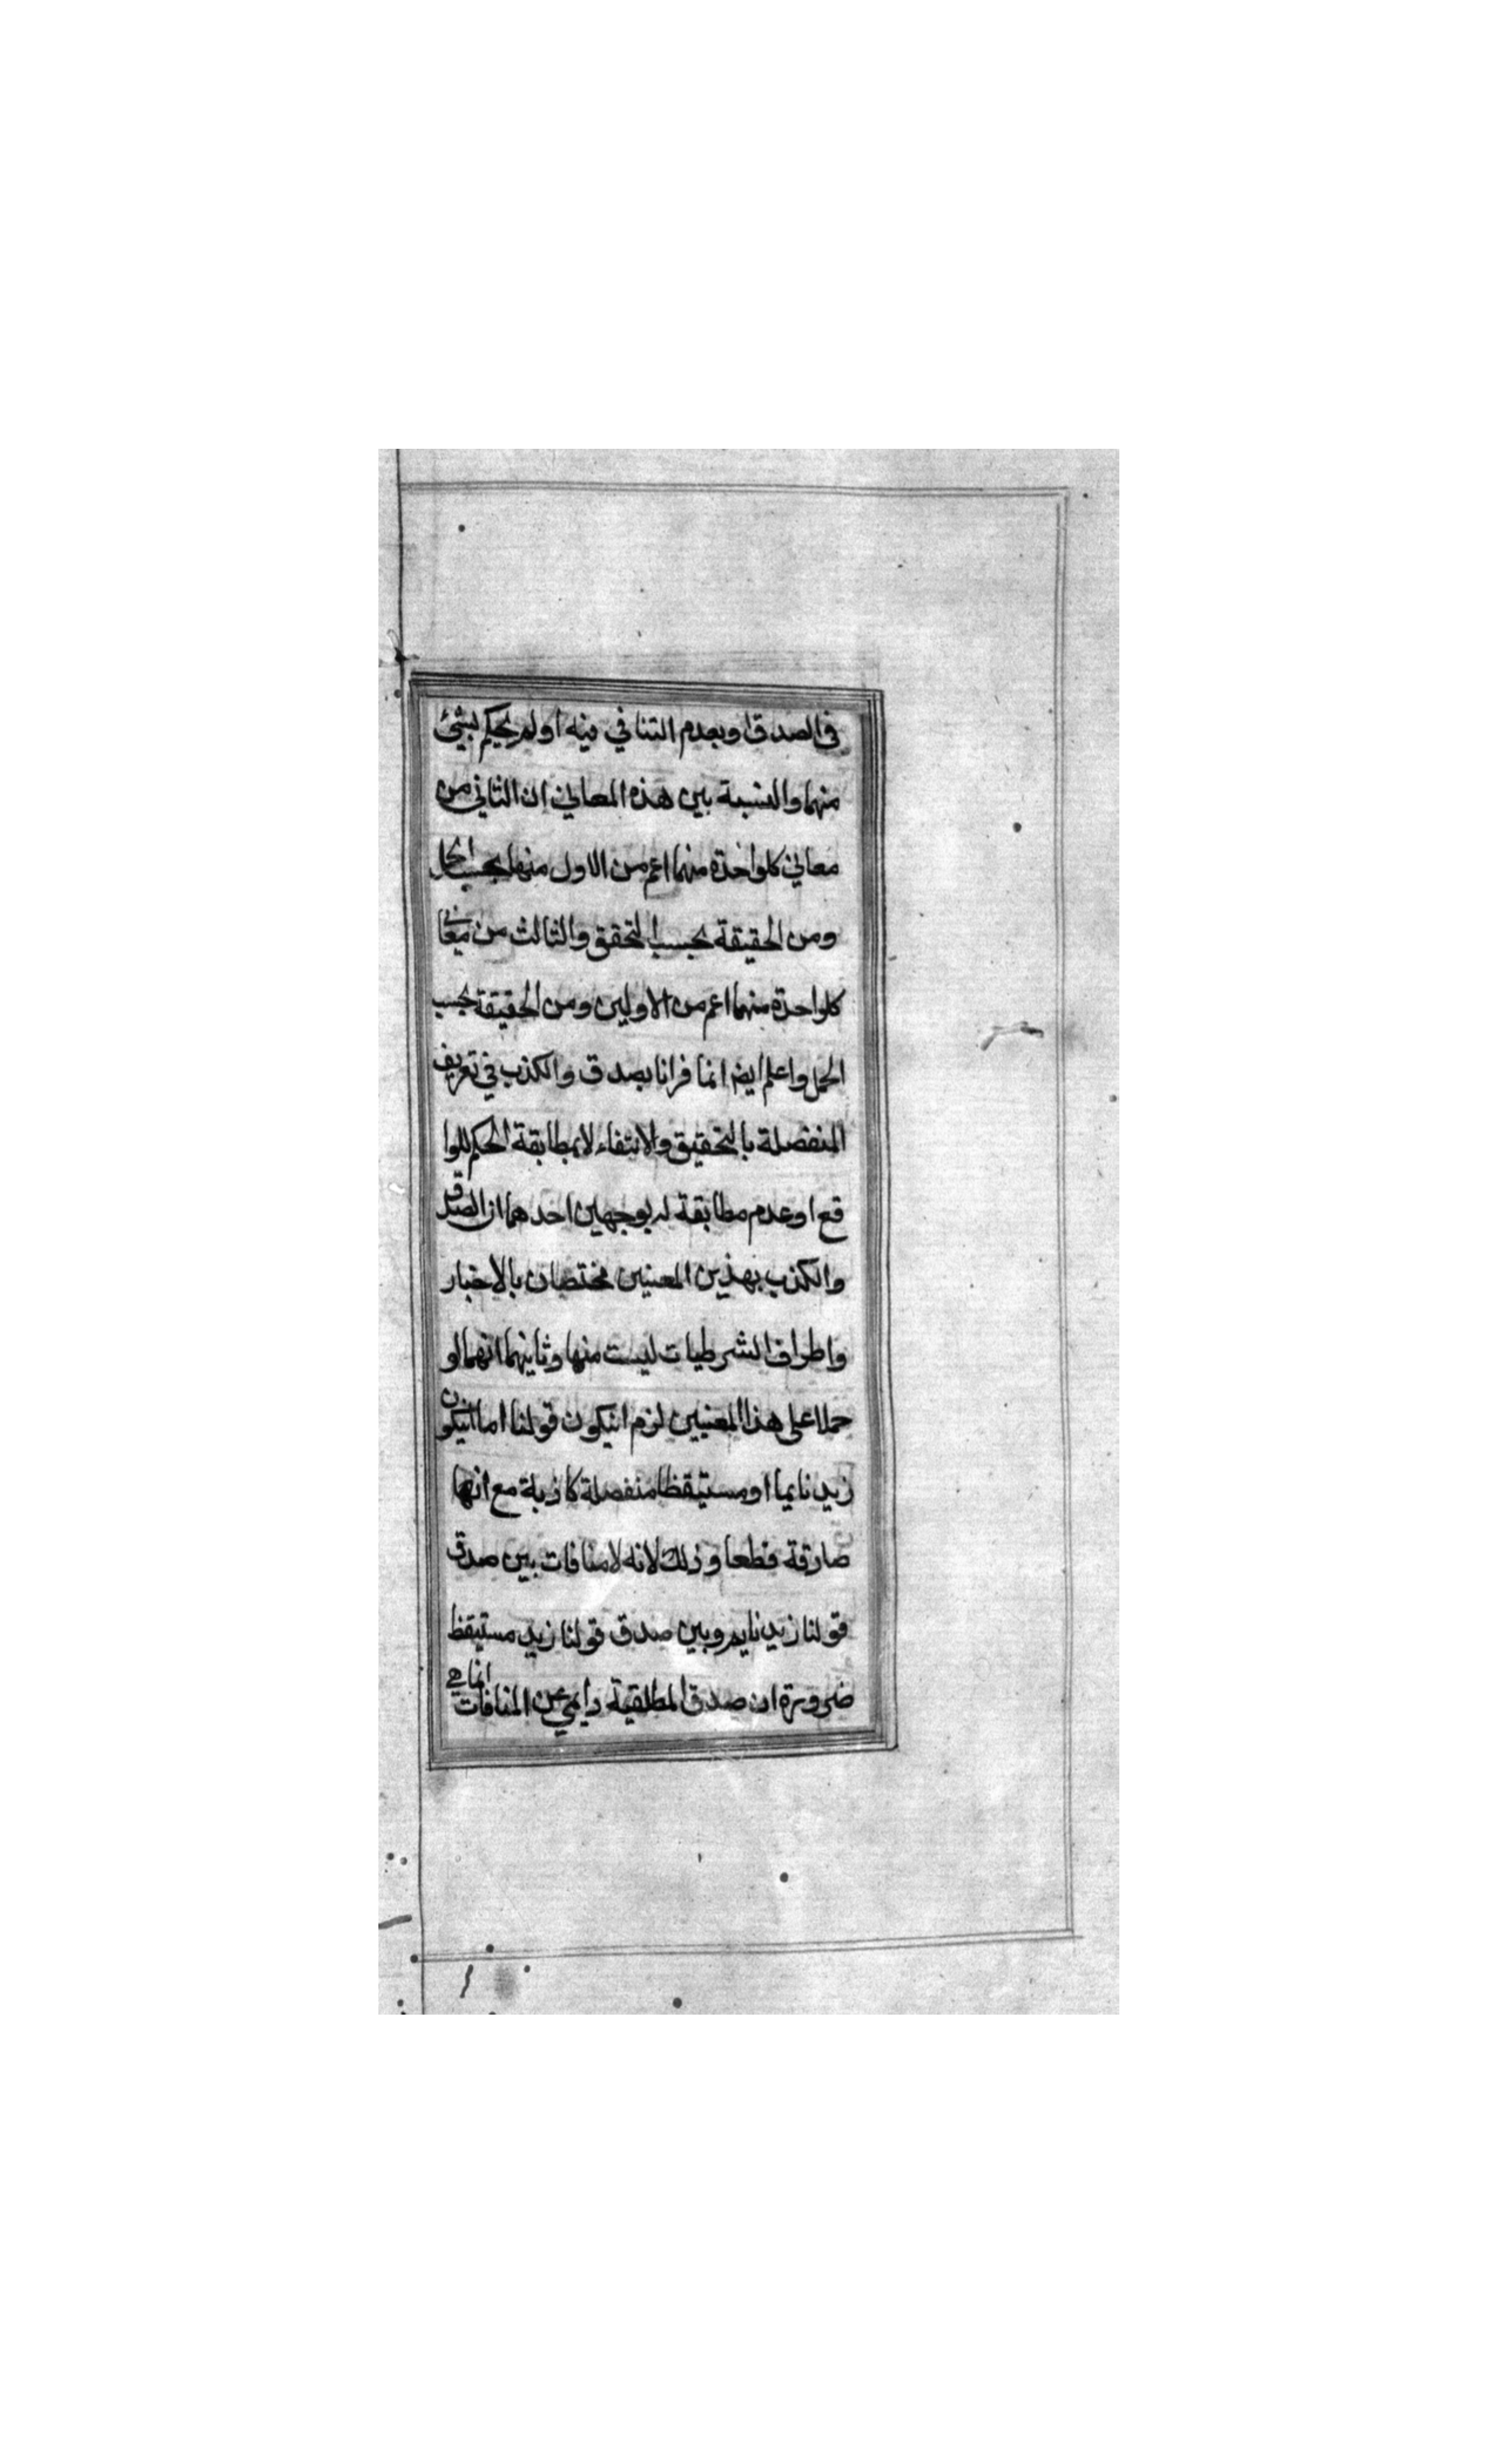 فى الصدق او بعدم التنافي فيه او لم يحكم بشئ
منهما والنسبة بين هذه المعاني ان الثاني من
معاني كلواحدة منهما اعم من الاول منها بحسب الحمل
ومن الحقيقة بحسب التحقق والثالث من معاني
كلواحدة منهما اعم من الاولين ومن الحقيقة بحسب
الحمل واعلم ايضا انما بصدق والكذب في تعريف
المنفصلة بالتحقيق والانتفاء لا بمطابقة الحكم للوا
قع او عدم مطابقة له بوجهين احدهما ان الصدق
والكذب بهذين المعنين مختصان بالاخبار
واطراف الشرطيات ليست منها وثانيهما انهما لو
حملا على هذا المعنيين لزم انيكون قولنا اما انيكون
زيد نايما او مستيقظا منفصلة كاذبة مع انها
صادقة قطعا وذلك لانه لا منافات بين صدق
قولنا زيد نايم وبين صدق قولنا زيد مستيقظ
ضرورة ان صدق المطلقية دايمي عن المنافات انما هي